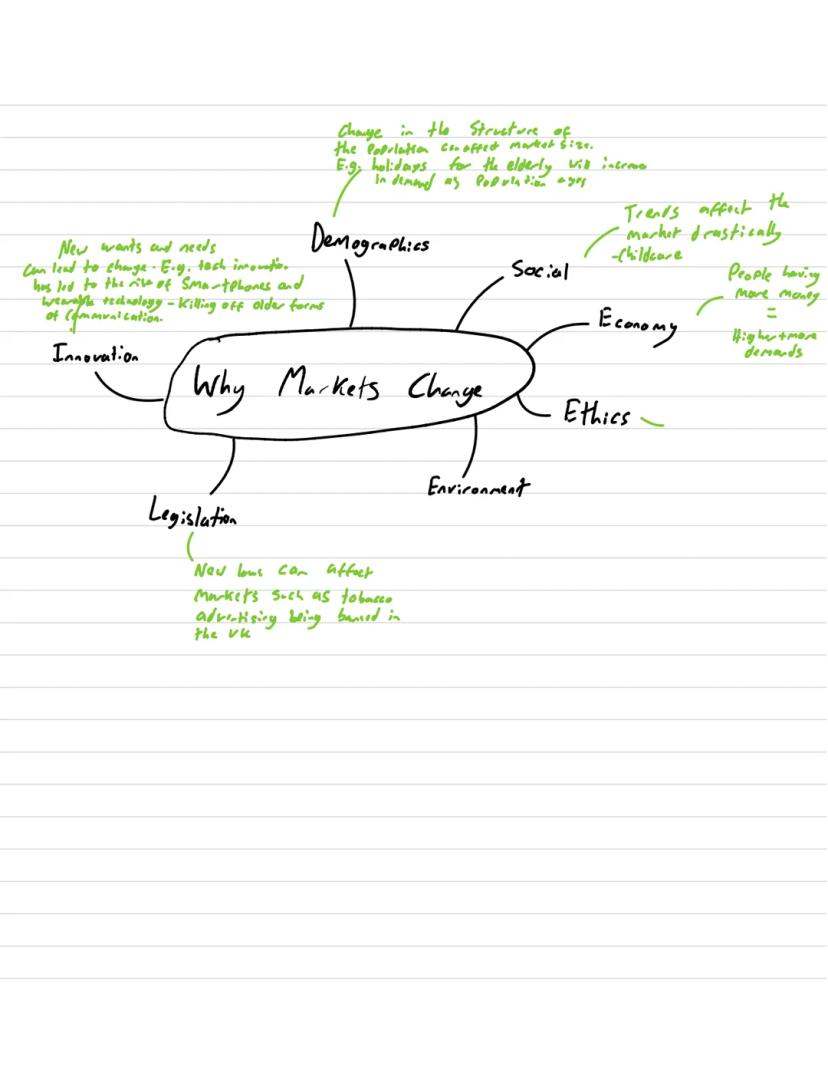 Change in the Structure of
the Population can affect market size.
E.g. holidays for the elderly will increase
in demand as Population ages
Demographics
Trends affect the
market drastically
-Childcare
Social
People having
more money
=
Higher + more
demands
Economy
Ethics
Environment
New laws can affect
Markets such as tobacco
advertising being banned in
the UK
Legislation
New wants and needs
Can lead to change. E.g. tech innovation
has led to the rise of Smartphones and
wearable technology - Killing off older forms
of Communication.
Innovation
Why Markets Change